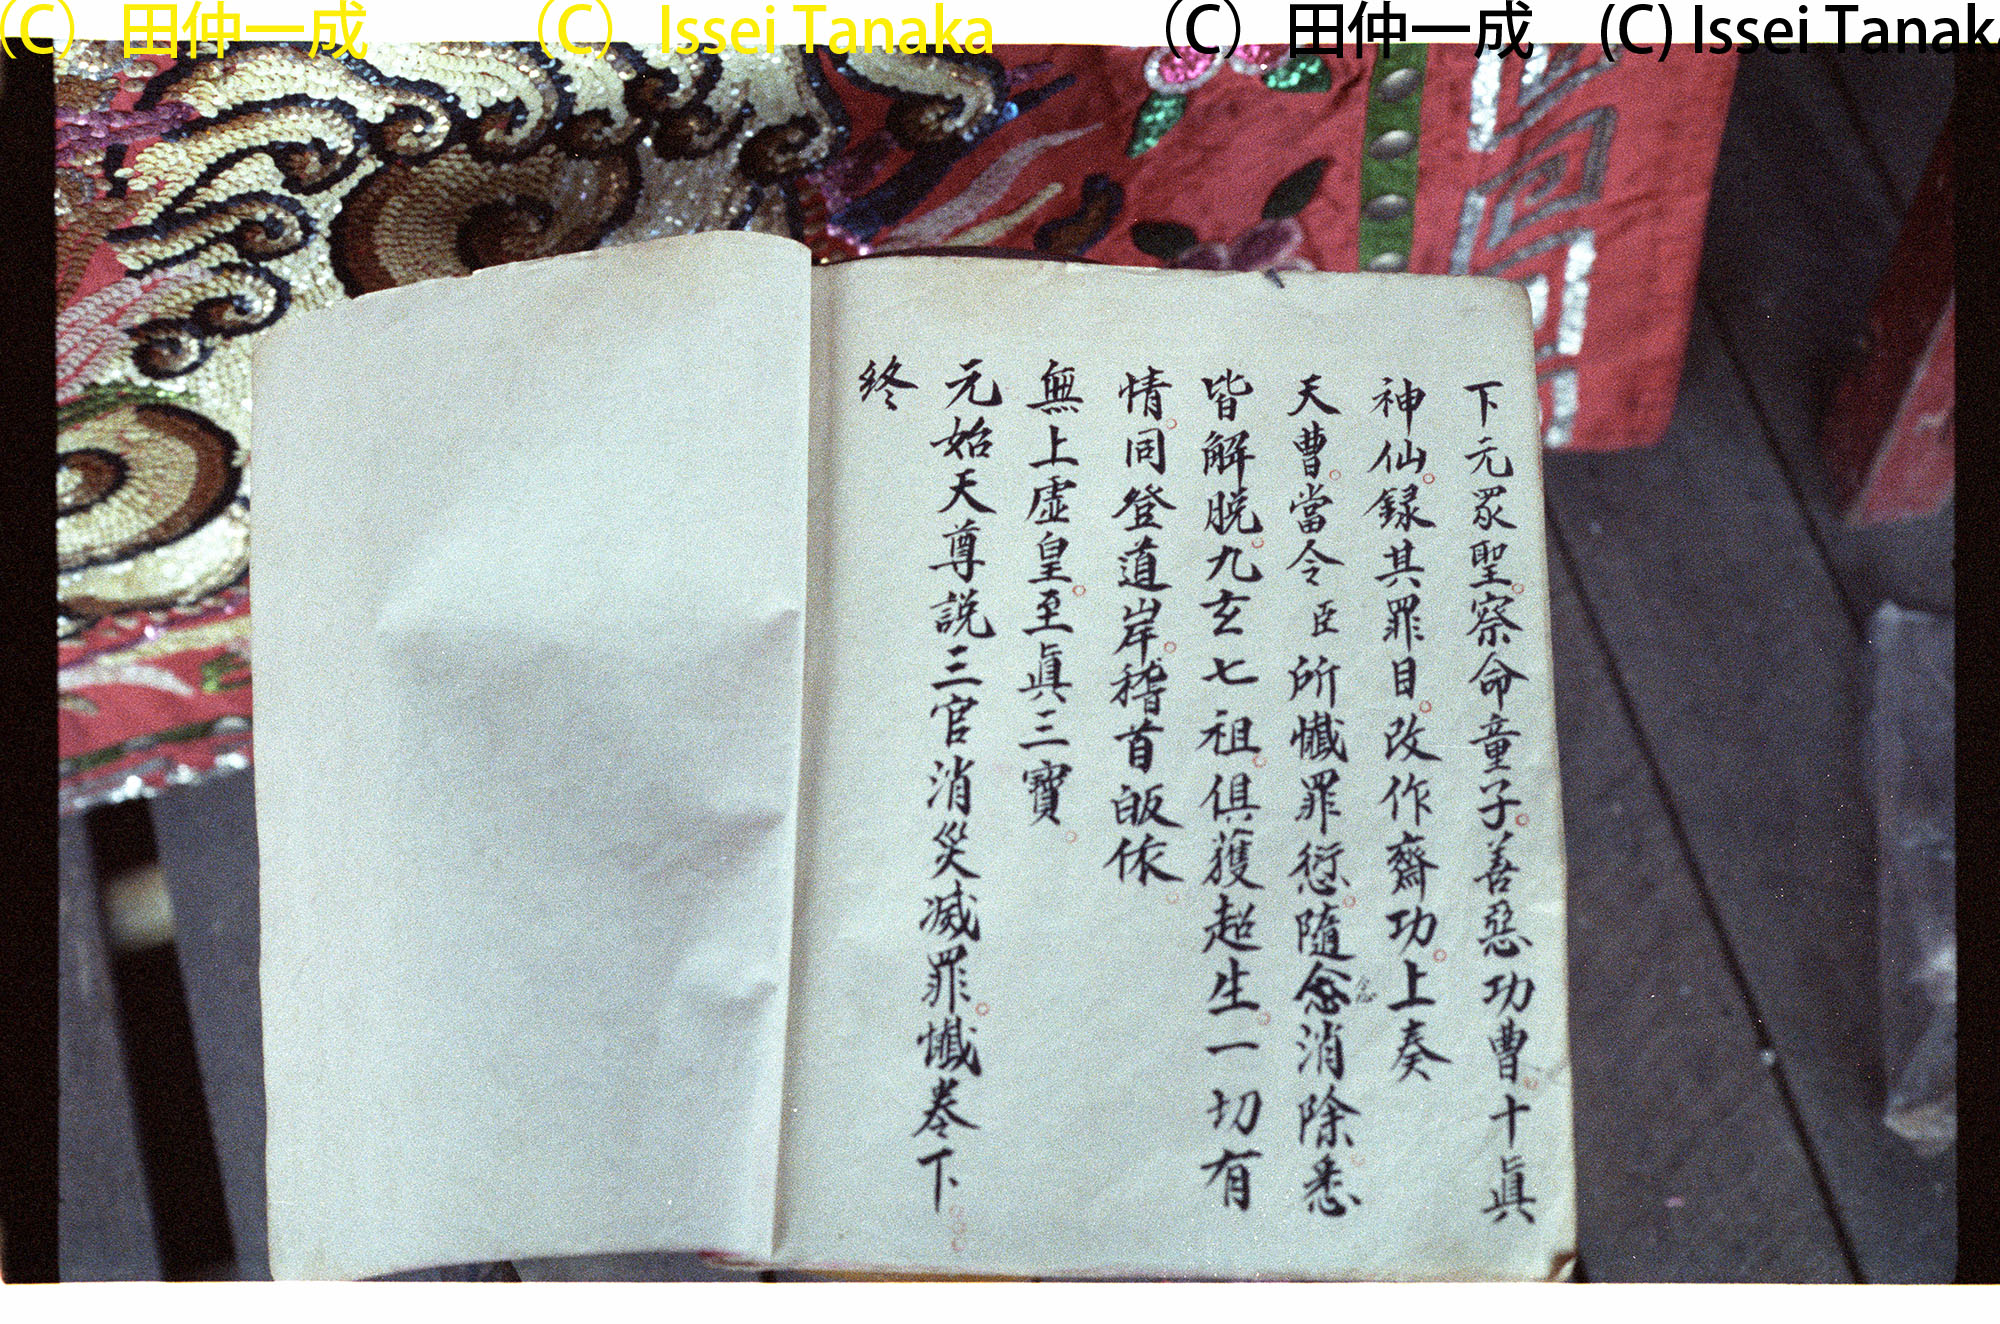 (C) 田仲一成 (C) Issei Tanaka (C) 田仲一成 (C) Issei Tanaka
下元眾聖。察命童子。善惡功曹。十眞
神仙。録其罪目。改作齋功。上奏
天曹。當令臣所懺罪愆。隨念消除。悉
皆解脱。九玄七祖。俱獲超生。一切有
情。同登道岸。稽首皈依。
無上虛皇。至眞三寶。
元始天尊説三官消災滅罪。懺卷下。。。
終